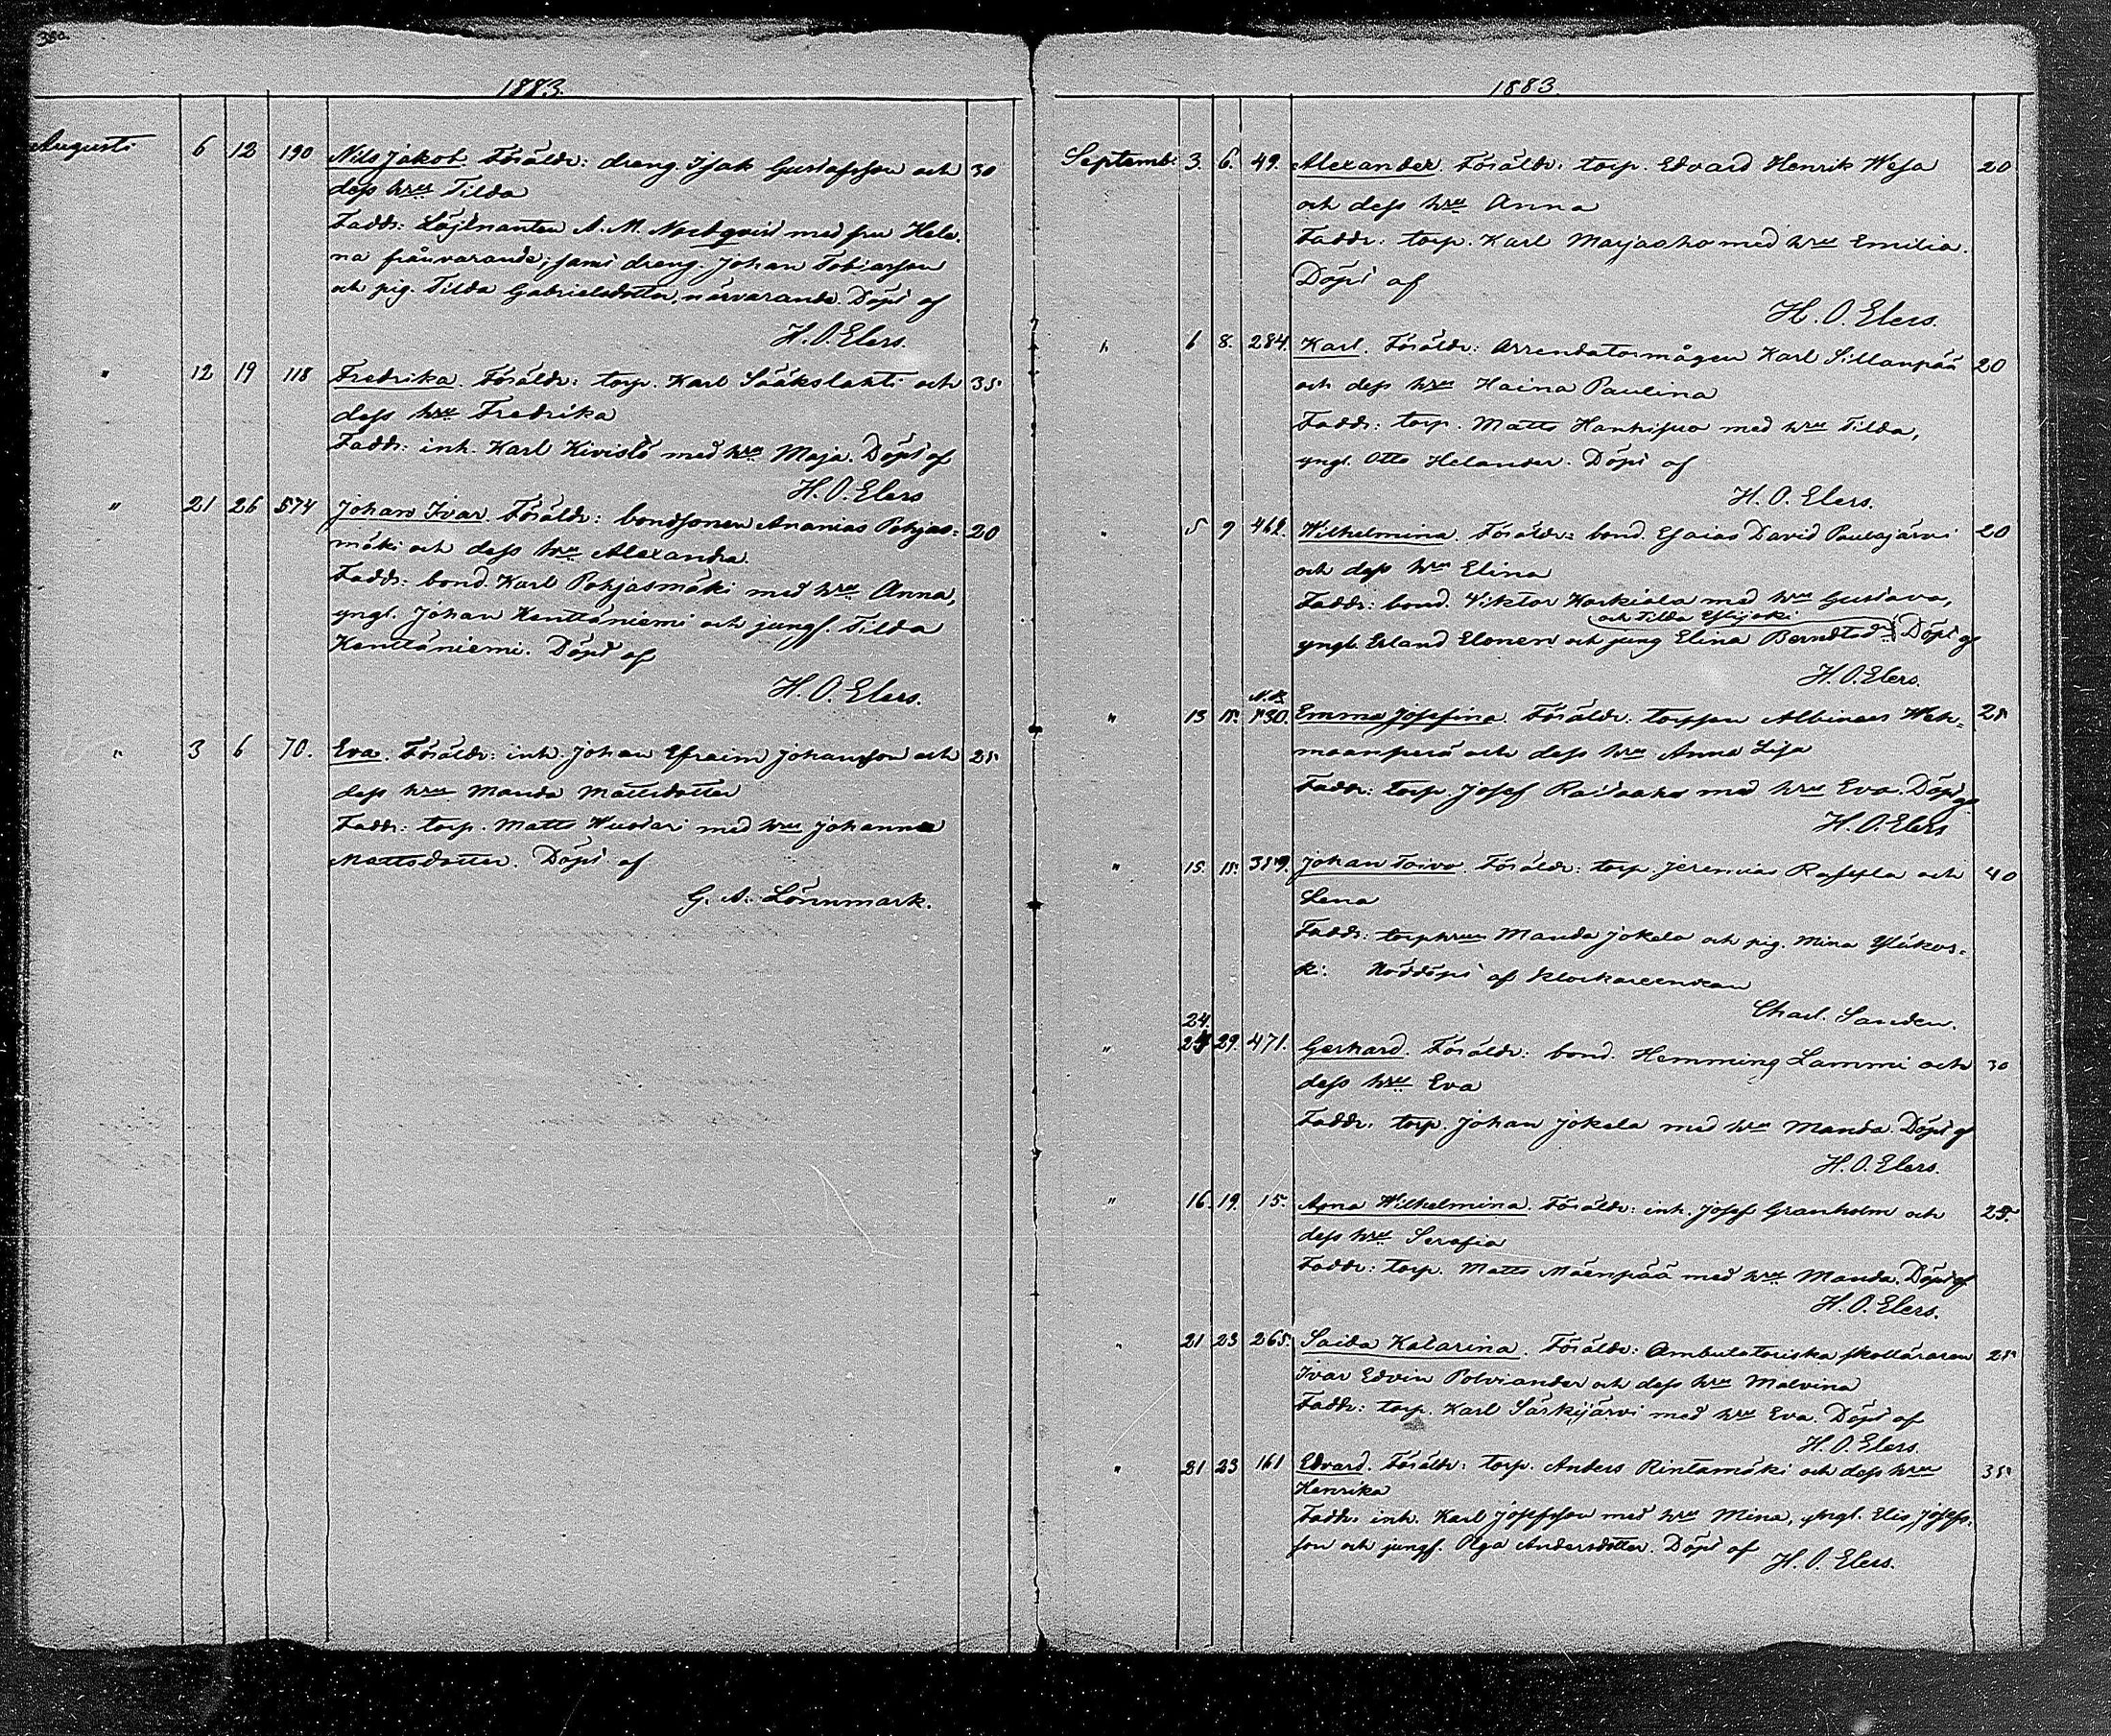 380.
1883.
Augusti 6 12 190 Nils Jakob. Föräldr: dreng. Isak Gustafsson och 30
dess hru Tilda
Faddr: Löjtnanten A. M. Nordqvist med fru Hele-
na frånvarande; samt dreng. Johan Tobiasson
och pig. Tilda Gabrielsdotter, närvarande. Döpt af
H. O. Elers.
" 12 19 118 Fredrika. Föräldr: torp. Karl Sääkslahti och 35
dess hru Fredrika
Faddr: inh. Karl Kivistö med hru Maja. Döpt af
H. O. Elers
" 21 26 574 Johan Ivar. Föräldr: bondsonen Ananias Pohjas- 20
mäki och dess hru Alexandra.
Faddr: bond. Karl Pohjasmäki med hru Anna,
yngl. Johan Kenttäniemi och jungf. Tilda
Kenttäniemi. Döpt af
H. O. Elers.
" 3 6 70. Eva. Föräldr: inh. Johan Efraim Johansson och 25
dess hru Manda Mattsdotter
Faddr: torp. Matts Wuotari med hru Johanna
Mattsdotter. Döpt af
G. A. Lönnmark.
1883.
Septemb. 3. 6. 49. Alexander. Föräldr: torp. Edvard Henrik Wesa 20
och dess hru Anna
Faddr: torp. Karl Marjaaho med hru Emilia.
Döpt af
H. O. Elers.
" 6 8. 284. Karl. Föräldr: Arrendatormågen Karl Sillanpää 20
och dess hru Haina Paulina
Faddr: torp. Matts Hanhisuo med hru Tilda,
yngl. Otto Helander. Döpt af
H. O. Elers.
" 5 9 462. Wilhelmina. Föräldr: bond. Esaias David Paulajärvi 20
och dess hru Elina
Faddr: bond. Viktor Harkiala med hru Gustava,
och Tilda Ylijoki
yngl. Erland Elonen och jung Elina Berndtsd. Döpt af
H. O. Elers.
N.K.
" 13 15. 130. Emma Josefina. Föräldr: torpson Albinus Weh- 25
maanperä och dess hru Anna Lisa
Faddr: torp. Josef Raitaaho med hru Eva. Döpt af
H. O. Elers
" 15. 15. 359. Johan Toivo. Föräldr: torp. Jeremias Rassila och 40
Lena
Faddr: torphrun Manda Jokela och pig. Mina Yläkos-
ki. Nöddöpt af klockareenkan
Charl. Sanden.
24.
" 29. 471. Gerhard. Föräldr: bond. Hemming Lammi och 30
dess hru Eva
Faddr: torp. Johan Jokela med hru Manda. Döpt af
H. O. Elers.
" 16. 19. 15. Anna Wilhelmina. Föräldr: inh. Josef Granholm och 25.
dess hru Serafia
Faddr: torp. Matts Mäenpää med hru Manda. Döpt af
H. O. Elers.
" 21 23 265. Saida Katarina. Föräldr: Ambulatoriska skolläraren 25
Ivar Edvin Polviander och dess hru Malvina
Faddr: torp. Karl Särkijärvi med hru Eva. Döpt af
H. O. Elers.
" 21 23 161 Edvard. Föräldr: torp. Anders Rintamäki och dess hru 35
Henrika
Faddr: inh. Karl Josefsson med hru Mina, yngl. Elis Josefs-
son och jungf. Olga Andersdotter. Döpt af H. O. Elers.